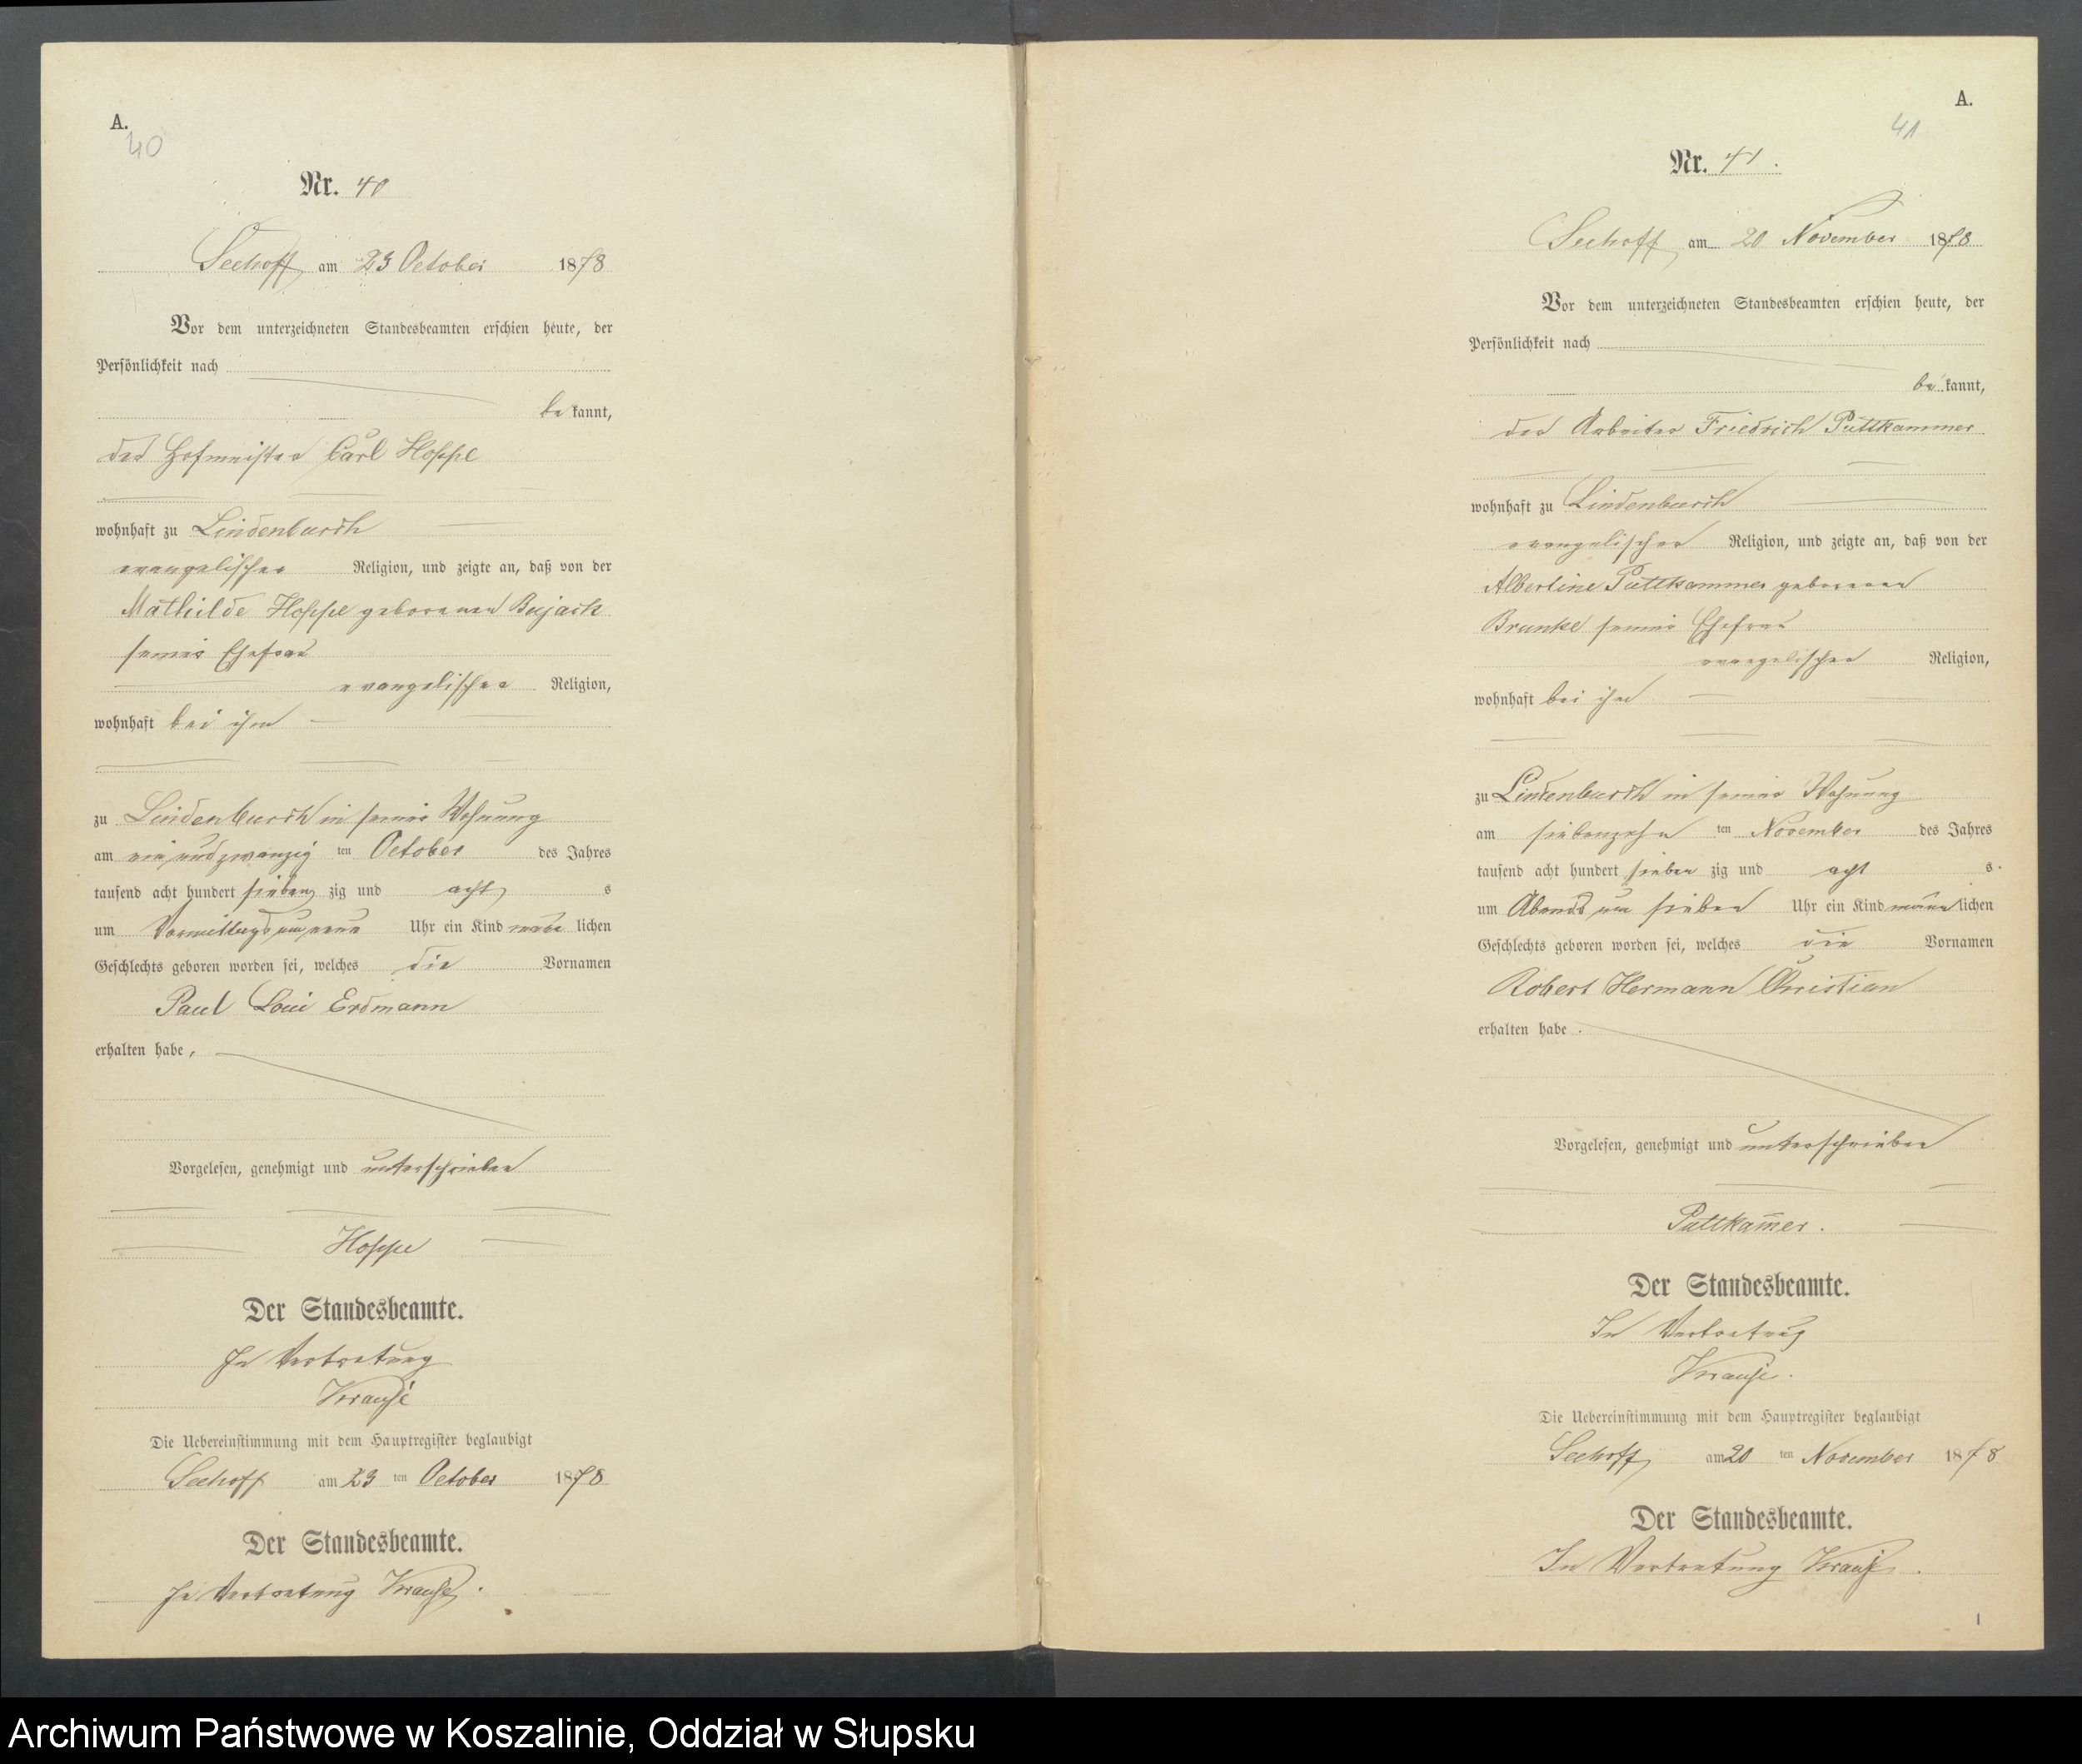 A.
40
Nr. 40
Seehoff am 23 October 1878
Vor dem unterzeichneten Standesbeamten erschien heute, der
Persönlichkeit nach
be kannt,
der Hofmeister Carl Hoppe
wohnhaft zu Lindenbusch
evangelischer Religion, und zeigte an, daß von der
Mathilde Hoppe geborenen Bujack
seiner Ehefrau
evangelischer Religion,
wohnhaft bei ihm
zu Lindenbusch in seiner Wohnung
am ein und zwanzig ten October des Jahres
tausend acht hundert sieben zig und acht s
um Vormittags um neun Uhr ein Kind männ lichen
Geschlechts geboren worden sei, welches die Vornamen
Paul Loui Erdmann
erhalten habe,
Vorgelesen, genehmigt und unterschrieben
Hoppe
Der Standesbeamte.
In Vertretung
Krause
Die Uebereinstimmung mit dem Hauptregister beglaubigt
Seehoff am 23 ten October 1878
Der Standesbeamte.
In Vertretung Krause.
A.
41
Nr. 41.
Seehoff am 20 November 1878
Vor dem unterzeichneten Standesbeamten erschien heute, der
Persönlichkeit nach
be kannt,
der Arbeiter Friedrich Puttkammer
wohnhaft zu Lindenbusch
evangelischer Religion, und zeigte an, daß von der
Albertine Puttkammer geborenen
Brunke seiner Ehefrau
evangelischer Religion,
wohnhaft bei ihm
zu Lindenbusch in seiner Wohnung
am siebenzehn ten November des Jahres
tausend acht hundert sieben zig und acht s.
um Abends um sieben Uhr ein Kind männ lichen
Geschlechts geboren worden sei, welches die Vornamen
Robert Hermann Christian
erhalten habe.
Vorgelesen, genehmigt und unterschrieben
Puttkam̄er.
Der Standesbeamte.
In Vertretung
Krause.
Die Uebereinstimmung mit dem Hauptregister beglaubigt
Seehoff am 20 ten November 1878
Der Standesbeamte.
In Vertretung Krause.
1
Archiwum Państwowe w Koszalinie, Oddział w Słupsku